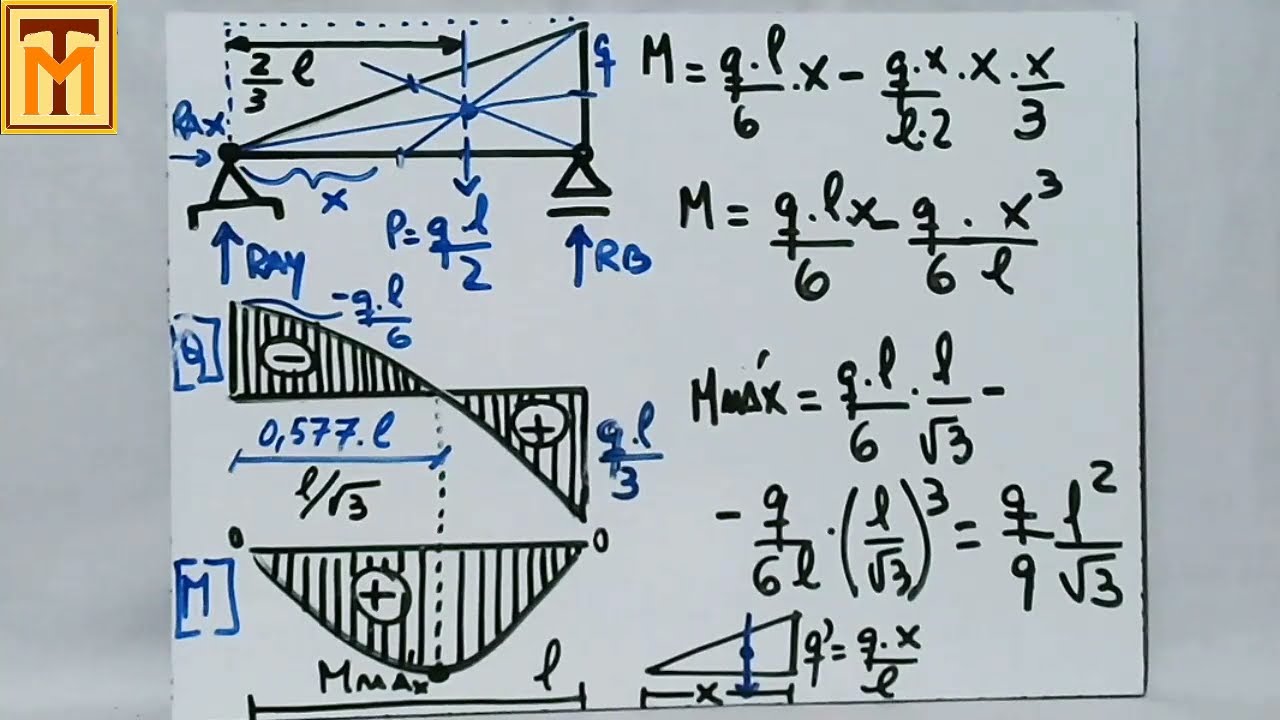 TM
2/3 l
q
RAX
x
P = q l / 2
RAY
RB
[Q]
- q.l / 6
−
+
0,577.l
l/√3
q.l / 3
0
0
[M]
+
Mmáx
l
M = q.l / 6 . x - q.x / l.2 . x . x / 3
M = q.l / 6 x - q / 6 . x³ / l
Mmáx = q.l / 6 . l / √3 -
- q / 6l . (l / √3)³ = q / 9 l² / √3
q' = q.x / l
x